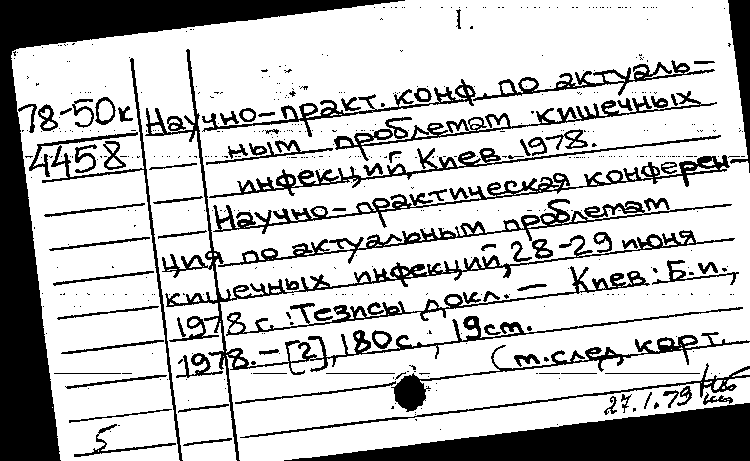 1.
78-50к
4458
Научно-практ. конф. по актуаль-
ным проблемам кишечных
инфекций, Киев. 1978.
Научно-практическая конферен-
ция по актуальным проблемам
кишечных инфекций, 28-29 июня
1978 г.: Тезисы докл. — Киев: Б.и.,
1978. — [2], 180 с.; 19 см.
(т. след. карт.
27.1.79
5